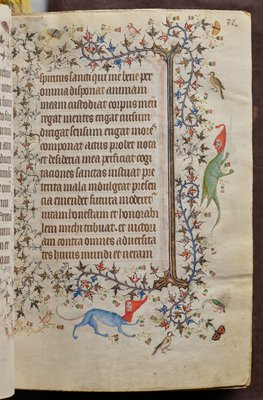 spiritus sancti qui me bene per
omnia disponat animam
meam custodiat corpus meu
regat mentes erigat cursum
dirigat sensum erigat mores
componat actus probet vota
et desideria mea perficiat cogi
taciones sanctas instituat pre
terita mala indulgeat presen
cia emendet futura moderet
vitam honestam et honorabi
lem michi tribuat et victori
am contra omnes adversita
tes huius mundi et veram